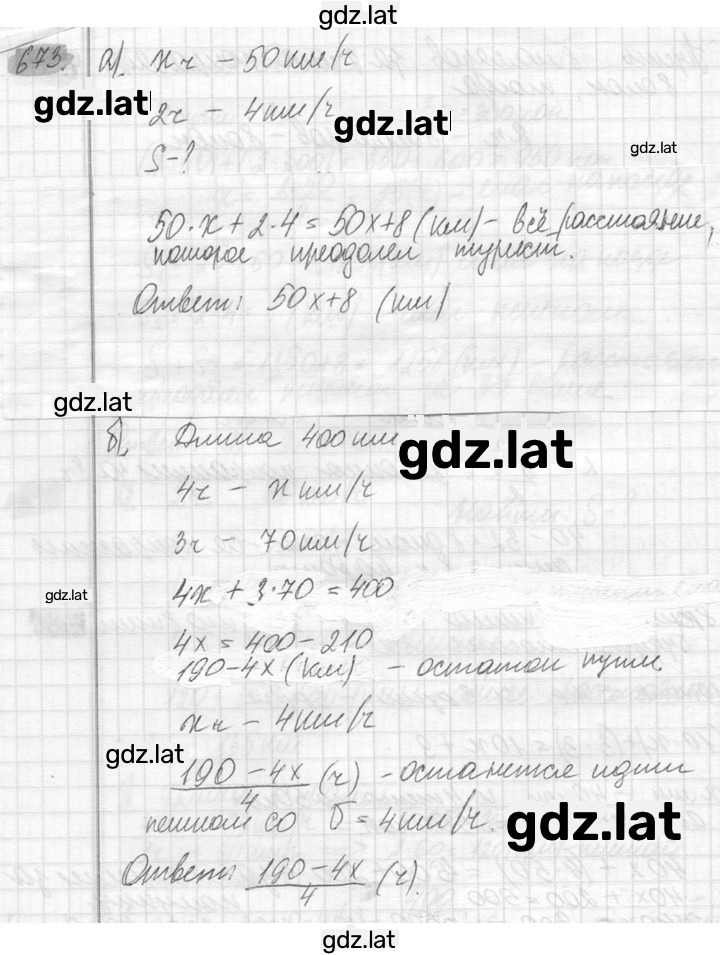 gdz.lat
673. а). x ч – 50 км/ч
gdz.lat
2ч – 4 км/ч
gdz.lat
S – ?
gdz.lat
50·x + 2·4 = 50x+8 (км) – всё расстояние,
которое преодолел турист.
Ответ: 50x+8 (км)
gdz.lat
б) Длина 400 км
gdz.lat
4ч – x км/ч
3ч – 70 км/ч
4x + 3·70 = 400
gdz.lat
4x = 400 – 210
190–4x (км) – остаток пути
x ч – 4 км/ч
gdz.lat
190 – 4x / 4 (ч) – останется идти
пешком со V = 4 км/ч.
gdz.lat
Ответ: 190 – 4x / 4 (ч).
gdz.lat